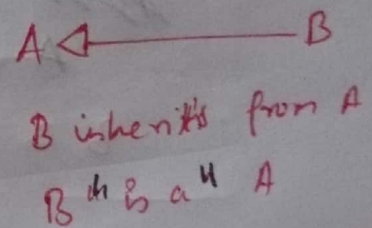 A B
B inherits from A
B "is a" A